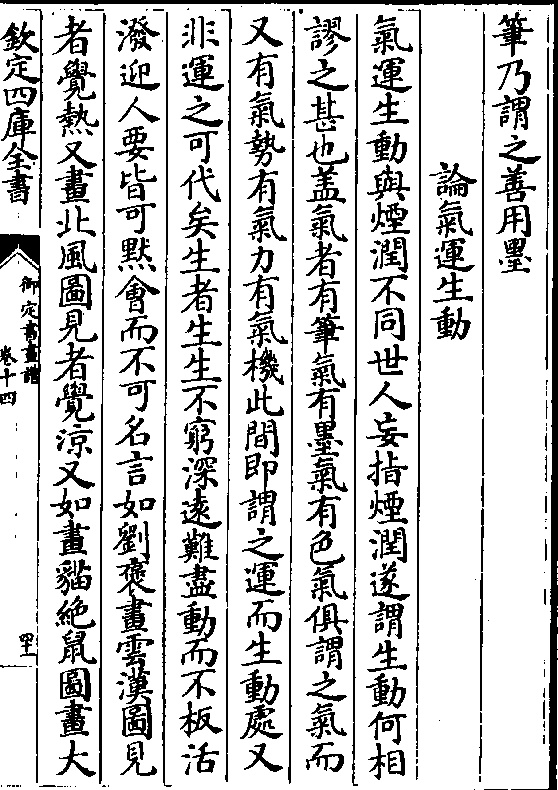 筆乃謂之善用墨
論氣運生動
氣運生動與煙潤不同世人妄指煙潤遂謂生動何相
謬之甚也盖氣者有筆氣有墨氣有色氣俱謂之氣而
又有氣勢有氣力有氣機此間即謂之運而生動處又
非運之可代矣生者生生不窮深遠難盡動而不板活
潑迎人要皆可黙會而不可名言如劉褒畫雲漢圖見
者覺熱又畫北風圖見者覺涼又如畫貓絶鼠圖畫大
欽定四庫全書
御定書畫譜
卷十四
四十一